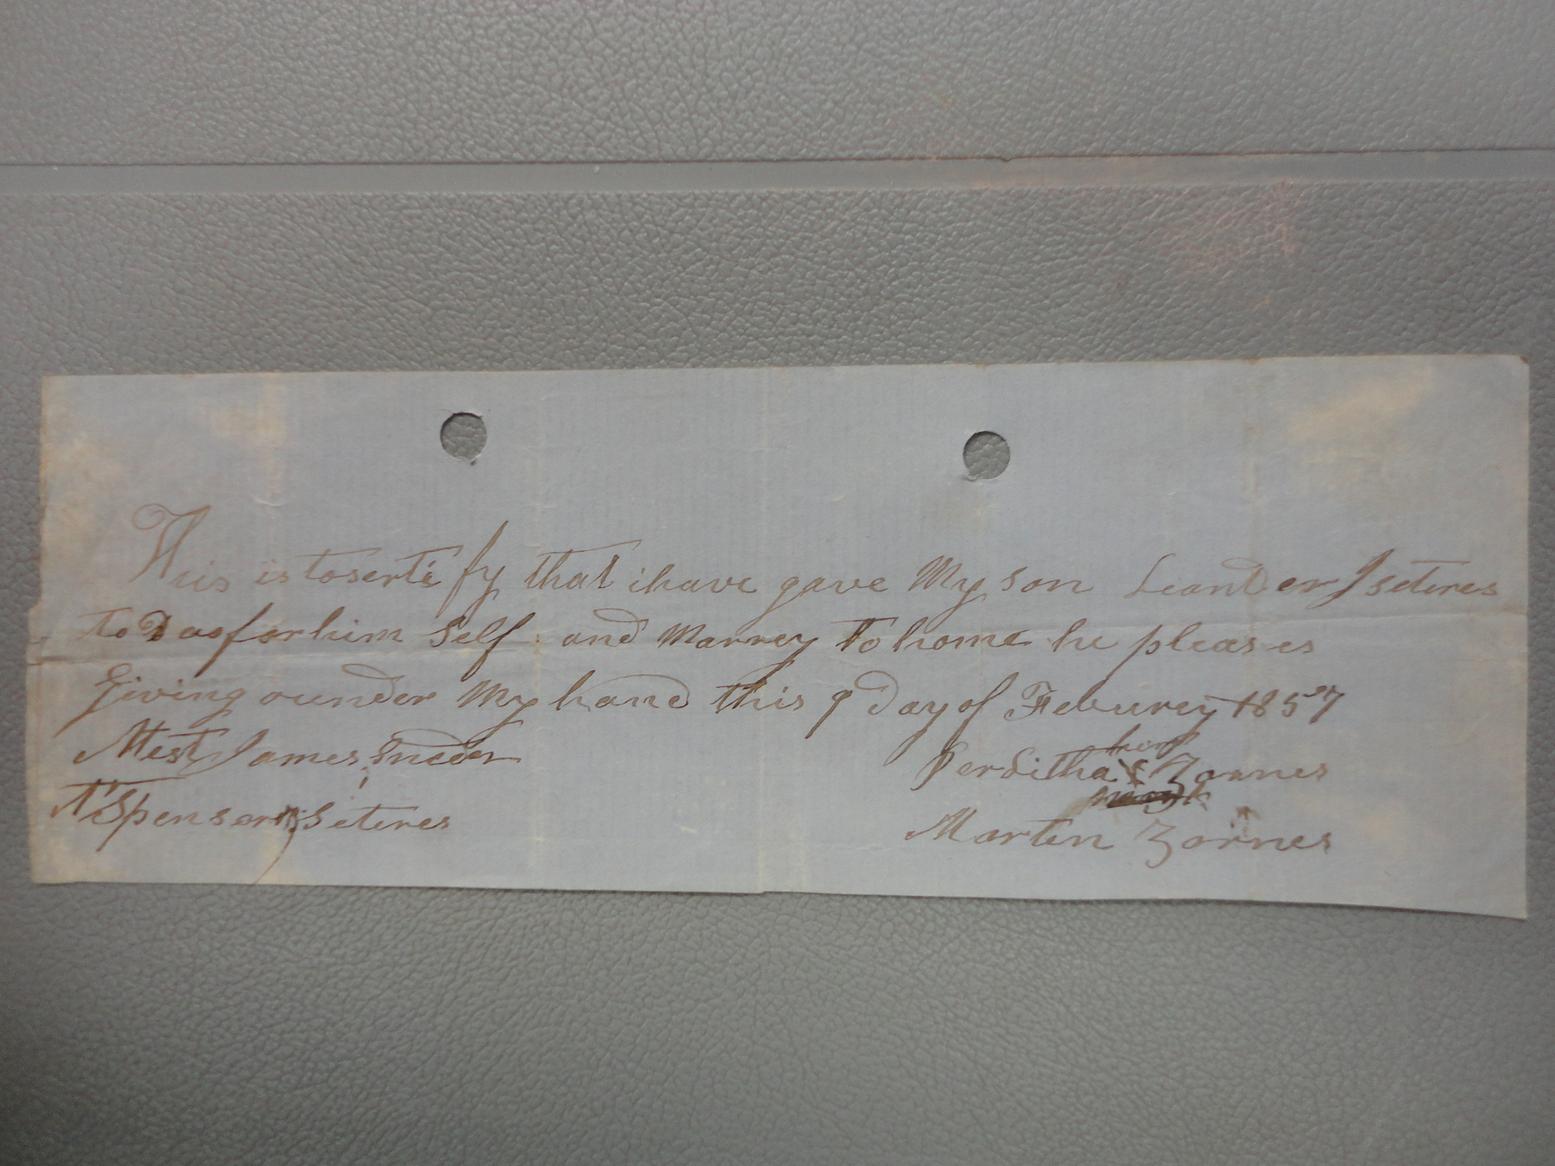 This is to serti fy that i have gave My son Leander J seteres
to Do as for him Self and Marrey To home he pleases
Giving ounder My hand this 9 Day of Feburey 1857
Attest James Sneder
Spenser Seteres
her
Perditha X Zornes
mark
Martin Zornes